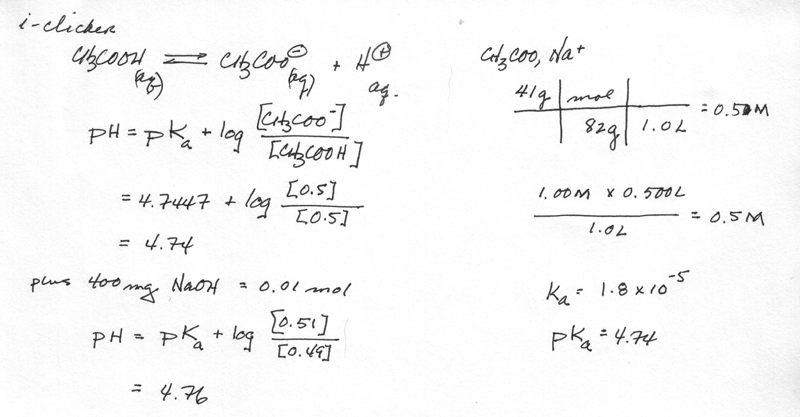 i-clicker
CH3COOH(aq) ⇌ CH3COO⊖(aq) + H⊕ aq.
pH = pKa + log [CH3COO⁻]/[CH3COOH]
= 4.7447 + log [0.5]/[0.5]
= 4.74
plus 400 mg NaOH = 0.01 mol
pH = pKa + log [0.51]/[0.49]
= 4.76
CH3COO, Na+
41g | mol |
| 82g | 1.0L = 0.5M
1.00M x 0.500L / 1.0L = 0.5M
Ka = 1.8 x 10⁻⁵
pKa = 4.74